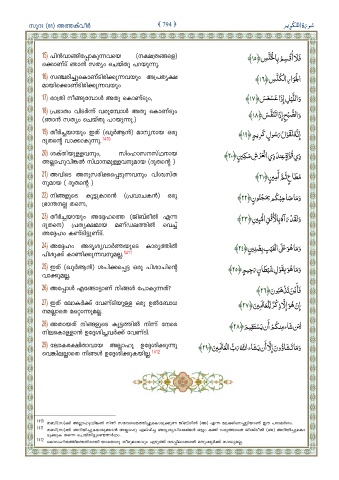 سورة التكوير
﴾ 794 ﴿
സൂറ (81) അത്തക്‌വീര്‍
15) പിന്‍വാങ്ങിപ്പോകുന്നവയെ (നക്ഷത്രങ്ങളെ)
ക്കൊണ്ട് ഞാന്‍ സത്യം ചെയ്തു പറയുന്നു.
فَلَا أُقْسِمُ بِالْخُنَّسِ ﴿١٥﴾
16) സഞ്ചരിച്ചുകൊണ്ടിരിക്കുന്നവയും അപ്രത്യക്ഷ
മായിക്കൊണ്ടിരിക്കുന്നവയും
الْجَوَارِ الْكُنَّسِ ﴿١٦﴾
17) രാത്രി നീങ്ങുമ്പോള്‍ അതു കൊണ്ടും,
وَاللَّيْلِ إِذَا عَسْعَسَ ﴿١٧﴾
18) പ്രഭാതം വിടര്‍ന്ന് വരുമ്പോള്‍ അതു കൊണ്ടും
(ഞാന്‍ സത്യം ചെയ്തു പറയുന്നു.)
وَالصُّبْحِ إِذَا تَنَفَّسَ ﴿١٨﴾
19) തീര്‍ച്ചയായും ഇത് (ഖുര്‍ആന്‍) മാന്യനായ ഒരു
ദൂതന്റെ വാക്കാകുന്നു.
إِنَّهُ لَقَوْلُ رَسُولٍ كَرِيمٍ ﴿١٩﴾
20) ശക്തിയുള്ളവനും, സിംഹാസനസ്ഥനായ
അല്ലാഹുവിങ്കല്‍ സ്ഥാനമുള്ളവനുമായ (ദൂതന്റെ )
ذِي قُوَّةٍ عِندَ ذِي الْعَرْشِ مَكِينٍ ﴿٢٠﴾
21) അവിടെ അനുസരിക്കപ്പെടുന്നവനും വിശ്വസ്ത
നുമായ ( ദൂതന്റെ )
مُّطَاعٍ ثَمَّ أَمِينٍ ﴿٢١﴾
22) നിങ്ങളുടെ കൂട്ടുകാരന്‍ (പ്രവാചകന്‍) ഒരു
ഭ്രാന്തനല്ല തന്നെ,
وَمَا صَاحِبُكُم بِمَجْنُونٍ ﴿٢٢﴾
23) തീര്‍ച്ചയായും അദ്ദേഹത്തെ (ജിബ്‌രീല്‍ എന്ന
ദൂതനെ) പ്രത്യക്ഷമായ മണ്ഡലത്തില്‍ വെച്ച്
അദ്ദേഹം കണ്ടിട്ടുണ്ട്.
وَلَقَدْ رَآهُ بِالْأُفُقِ الْمُبِينِ ﴿٢٣﴾
24) അദ്ദേഹം അദൃശ്യവാര്‍ത്തയുടെ കാര്യത്തില്‍
പിശുക്ക് കാണിക്കുന്നവനുമല്ല.
وَمَا هُوَ عَلَى الْغَيْبِ بِضَنِينٍ ﴿٢٤﴾
25) ഇത് (ഖുര്‍ആന്‍) ശപിക്കപ്പെട്ട ഒരു പിശാചിന്റെ
വാക്കുമല്ല.
وَمَا هُوَ بِقَوْلِ شَيْطَانٍ رَّجِيمٍ ﴿٢٥﴾
26) അപ്പോള്‍ എങ്ങോട്ടാണ് നിങ്ങള്‍ പോകുന്നത്?
فَأَيْنَ تَذْهَبُونَ ﴿٢٦﴾
27) ഇത് ലോകര്‍ക്ക് വേണ്ടിയുള്ള ഒരു ഉല്‍ബോധ
നമല്ലാതെ മറ്റൊന്നുമല്ല.
إِنْ هُوَ إِلَّا ذِكْرٌ لِّلْعَالَمِينَ ﴿٢٧﴾
28) അതായത് നിങ്ങളുടെ കൂട്ടത്തില്‍ നിന്ന് നേരെ
നിലകൊള്ളാന്‍ ഉദ്ദേശിച്ചവര്‍ക്ക് വേണ്ടി.
لِمَن شَاءَ مِنكُمْ أَن يَسْتَقِيمَ ﴿٢٨﴾
29) ലോകരക്ഷിതാവായ അല്ലാഹു ഉദ്ദേശിക്കുന്നു
വെങ്കിലല്ലാതെ നിങ്ങള്‍ ഉദ്ദേശിക്കുകയില്ല.
وَمَا تَشَاءُونَ إِلَّا أَن يَشَاءَ اللَّهُ رَبُّ الْعَالَمِينَ ﴿٢٩﴾